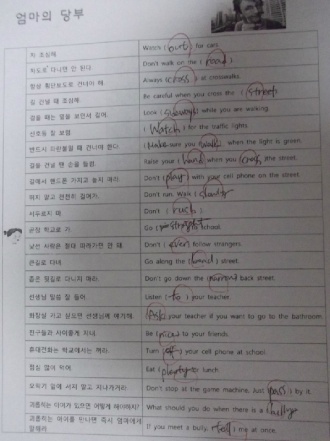 엄마의 당부
차 조심해. Watch ( out ) for cars.
차도로 다니면 안 된다. Don't walk on the ( road )
항상 횡단보도로 건너야 해. Always ( cross ) at crosswalks.
길 건널 때 조심해. Be careful when you cross the ( street
걸을 때는 앞을 보면서 걸어. Look ( ) while you are walking.
신호등 잘 보렴. ( Watch ) for the traffic lights
반드시 파란불일 때 건너야 한다. ( Make sure you walk ) when the light is green.
길을 건널 땐 손을 들렴. Raise your ( hand when you ( cross the street.
길에서 핸드폰 가지고 놀지 마라. Don't ( play ) with your cell phone on the street.
뛰지 말고 천천히 걸어가. Don't run. Walk ( slowly
서두르지 마. Don't ( rush
곧장 학교로 가 Go ( straight school.
낯선 사람은 절대 따라가면 안 돼. Don't ( ever follow strangers.
큰길로 다녀. Go along the ( broad ) street.
좁은 뒷길로 다니지 마라. Don't go down the ( narrow back street.
선생님 말씀 잘 들어. Listen ( to ) your teacher
화장실 가고 싶으면 선생님께 얘기해. ( Ask your teacher if you want to go to the bathroom
친구들과 사이좋게 지내. Be ( nice to your friends.
휴대전화는 학교에서는 꺼라. Turn ( off ) your cell phone at school
점심 많이 먹어. Eat ( plenty lunch
오락기 앞에 서지 말고 지나가거라. Don't stop at the game machine, Just ( pass ) by it.
괴롭히는 아이가 있으면 어떻게 해야하지? What should you do when there is a ( bully
괴롭히는 아이를 만나면 즉시 엄마에게 말해라 If you meet a bully, ( tell ) me at once.